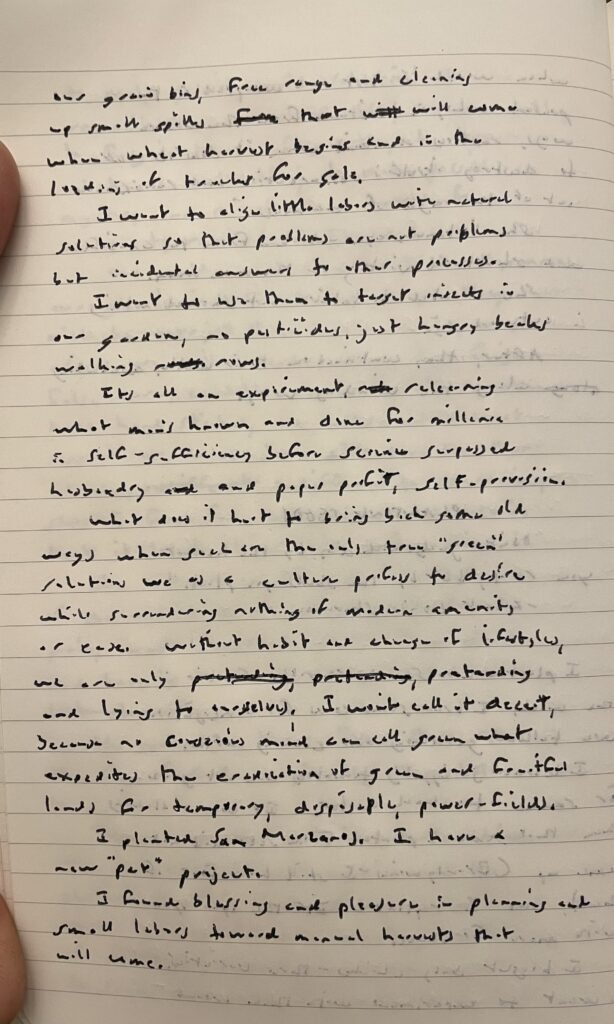 our grain bins, free range and cleaning
up small spills that will come
when wheat harvest begins and in the
loading of trucks for sale.
I want to align little labors with natural
solutions so that problems are not problems
but incidental answers to other processes.
I want to use them to target insects in
our garden, no pesticides, just hungry beaks
walking rows.
Its all an experiment, relearning
what man's known and done for millenia
in self-sufficiency before service surpassed
husbandry and paper profit, self-provision.
What does it hurt to bring back some old
ways when such are the only true "green"
solutions we as a culture profess to desire
while surrendering nothing of modern amenity
or ease. Without habit and change of lifestyles,
we are only pretending, pretending, pretending
and lying to ourselves. I won't call it deceit,
because no conscious mind can call green what
expedites the eradication of green and fruitful
lands for temporary, disposable, power-fields.
I planted San Marzanos. I have a
new "pet" project.
I found blessing and pleasure in planning and
small labors toward manual harvests that
will come.